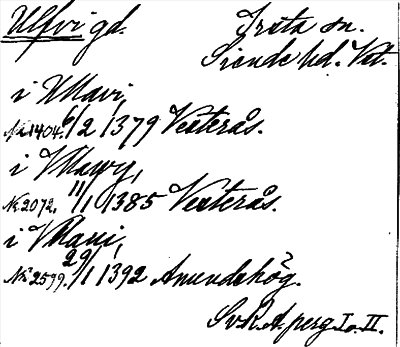 Ulfvi gd. Irsta sn.
Siende hd. Vst.
i Vllavi,
No 1404. 6/2 1379 Vesterås.
i Vllawy,
No 2072. 11/1 1385 Vesterås.
i Vllaui,
No 2599. 29/1 1392 Anundshög.
Sv. R. A. perg. I o. II.